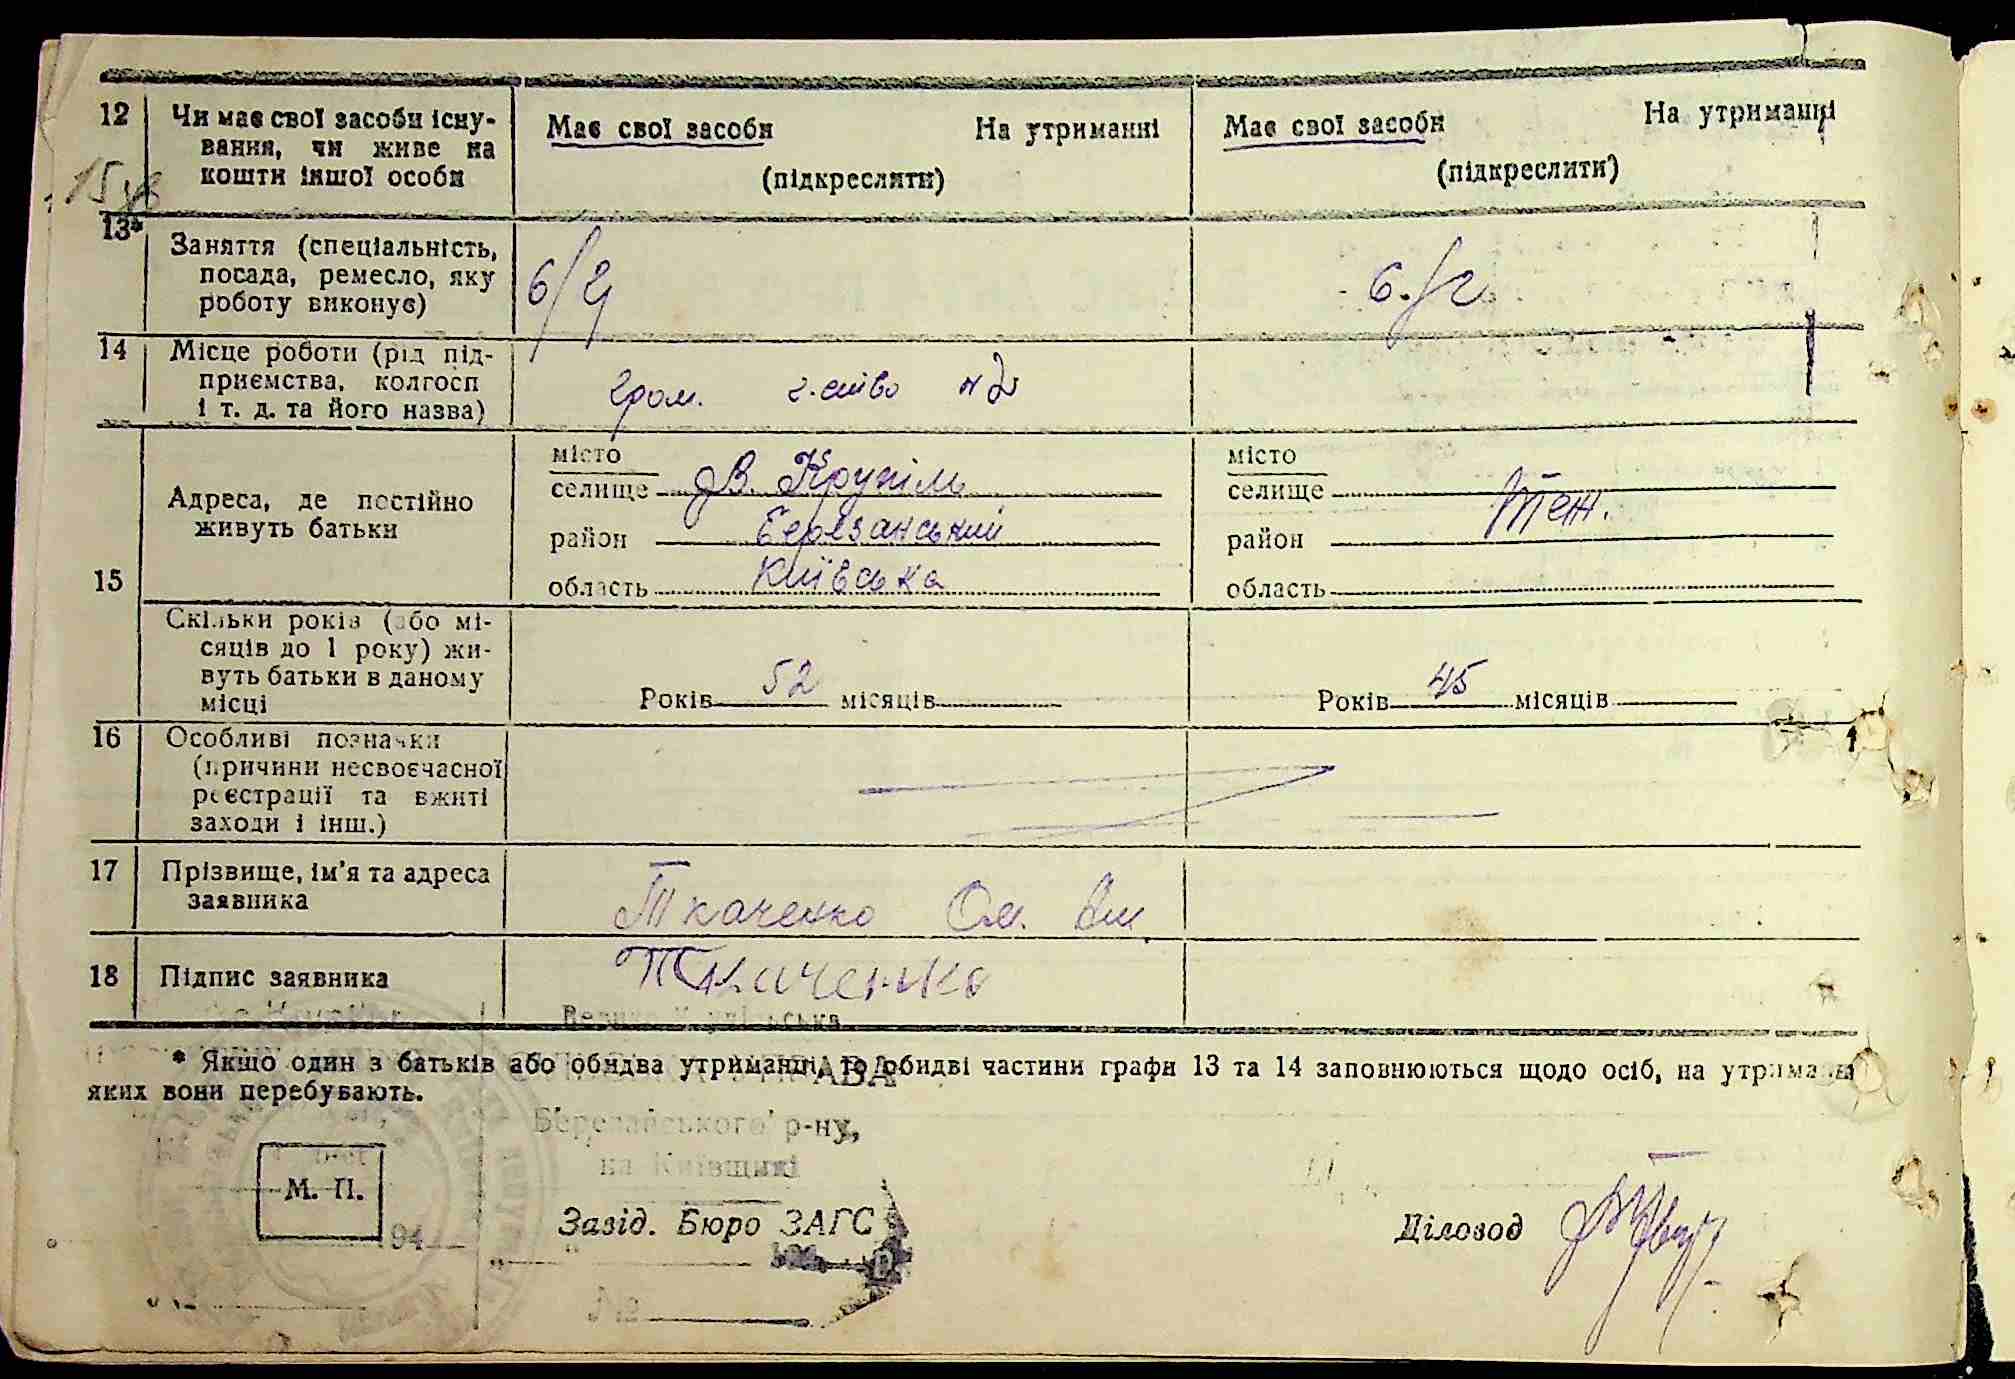 12 Чи має свої засоби існу- Має свої засоби На утриманні Має свої засоби На утриманні
вання, чи живе на (підкреслити) (підкреслити)
кошти іншої особи
13* Заняття (спеціальність, б/г б./г
посада, ремесло, яку
роботу виконує)
14 Місце роботи (рід під- гром. г. ство
приємства, колгосп
і т. д. та його назва)
15 Адреса, де постійно
живуть батьки
місто місто
селище В. Крупіль селище Теж.
район Березанський район
область Київська область
Скільки років (або мі-
сяців до 1 року) жи-
вуть батьки в даному
місці Років 52 місяців Років 45 місяців
16 Особливі позначки
(причини несвоєчасної
реєстрації та вжиті
заходи і інш.)
17 Прізвище, ім'я та адреса Ткаченко Ом.
заявника
18 Підпис заявника Ткаченко
* Якщо один з батьків або обидва утриманці, то обидві частини графи 13 та 14 заповнюються щодо осіб, на утриманні
яких вони перебувають.
Березанського р-ну,
на Київщині
М. П.
Завід. Бюро ЗАГС Діловод
194
№